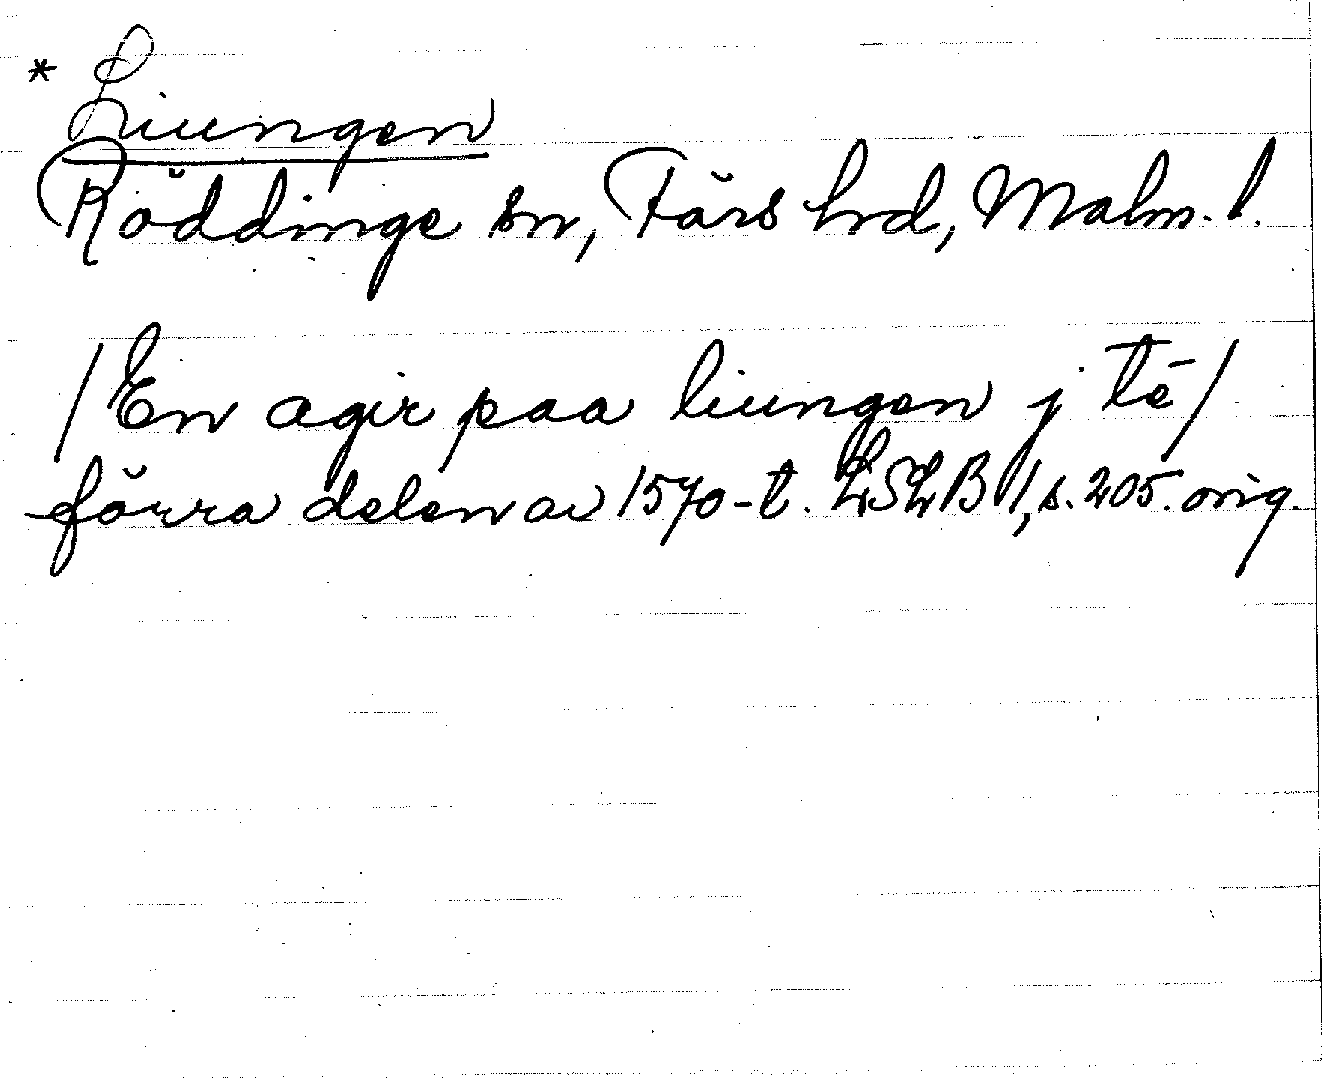 * Liungen
Röddinge sn, Färs hrd, Malm. l.
/En agir paa liungen j té/
förra delen av 1570-t. LSLB 1, s. 205. orig.